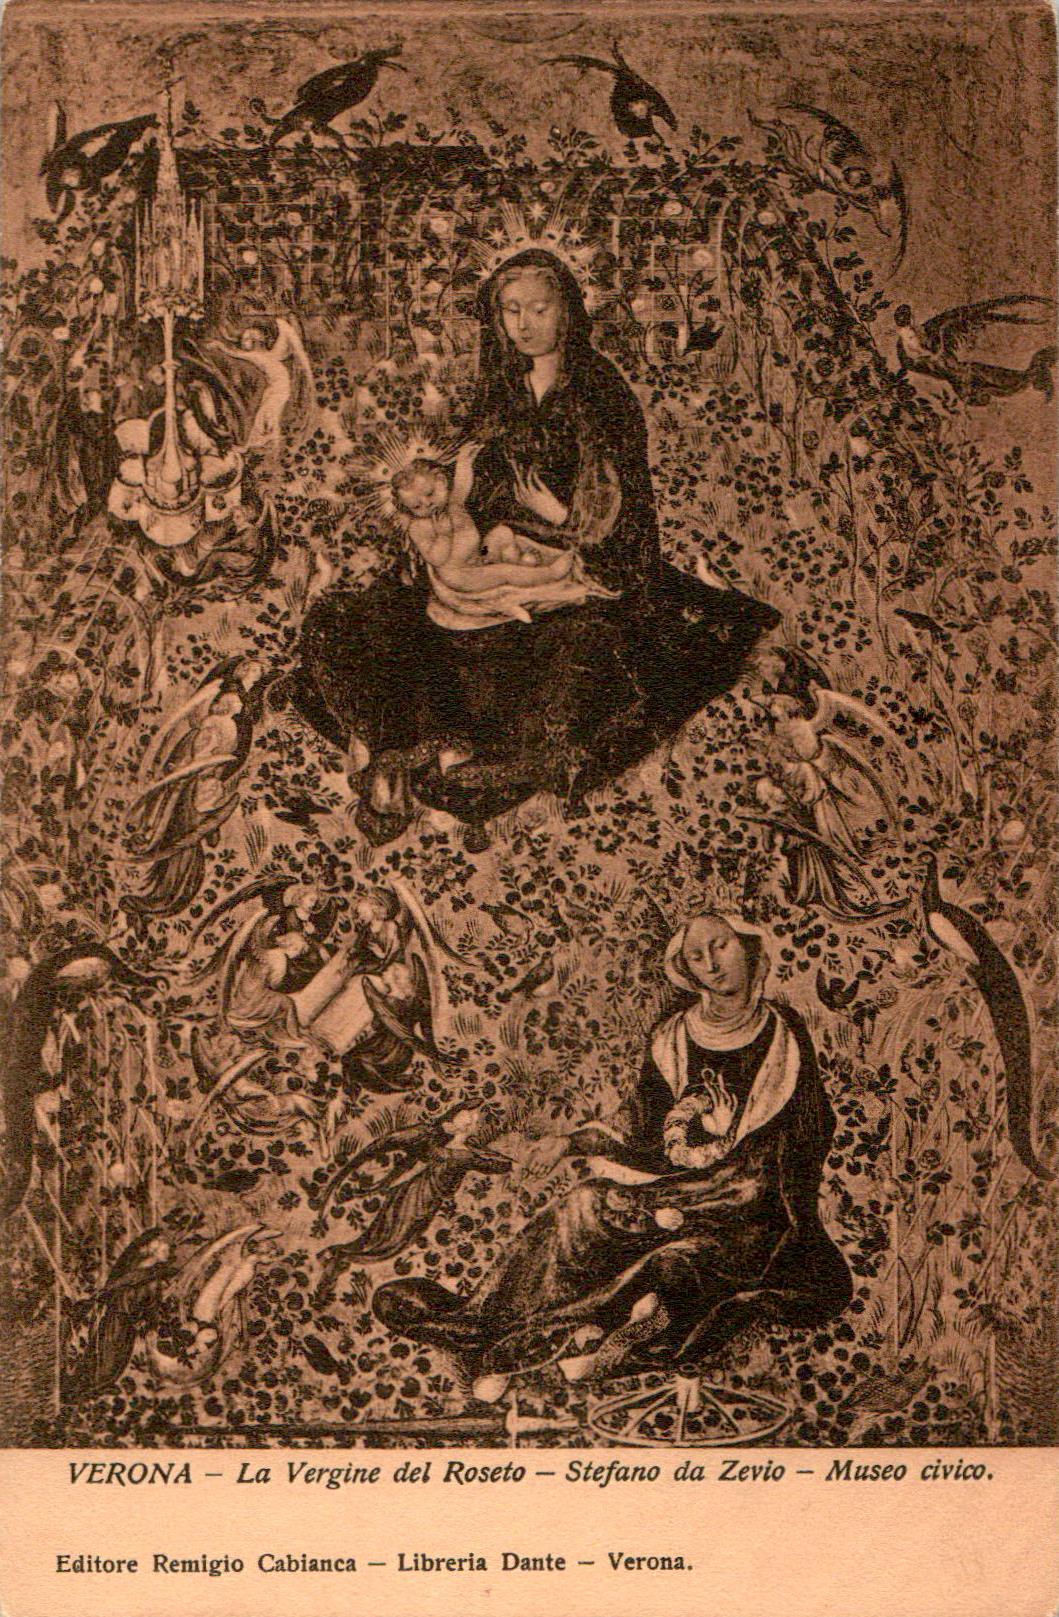 VERONA – La Vergine del Roseto – Stefano da Zevio – Museo civico.
Editore Remigio Cabianca – Libreria Dante – Verona.